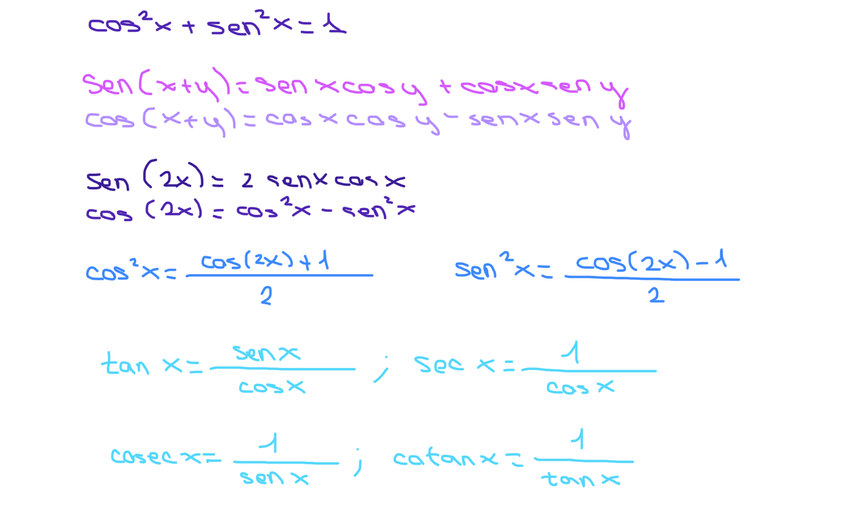 cos²x + sen²x = 1
sen(x+y) = senx cosy + cosx sen y
cos(x+y) = cosx cosy - senx sen y
sen (2x) = 2 senx cosx
cos (2x) = cos²x - sen²x
cos²x = (cos(2x)+1)/2 sen²x = (cos(2x)-1)/2
tan x = senx/cosx ; sec x = 1/cosx
cosec x = 1/senx ; catan x = 1/tanx